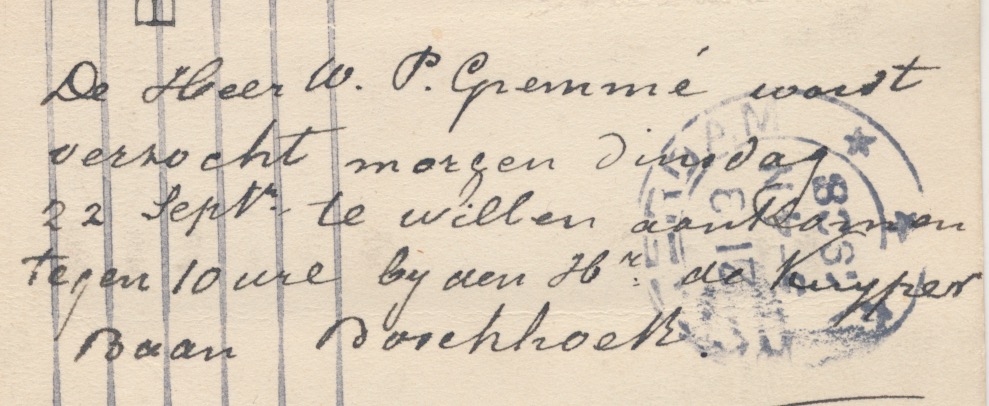 De Heer W. P. Gremmé wordt
verzocht morgen dinsdag
22 Septr. te willen aankomen
tegen 10 ure by den Hr. de Kuyper
Baan Boschhoek.